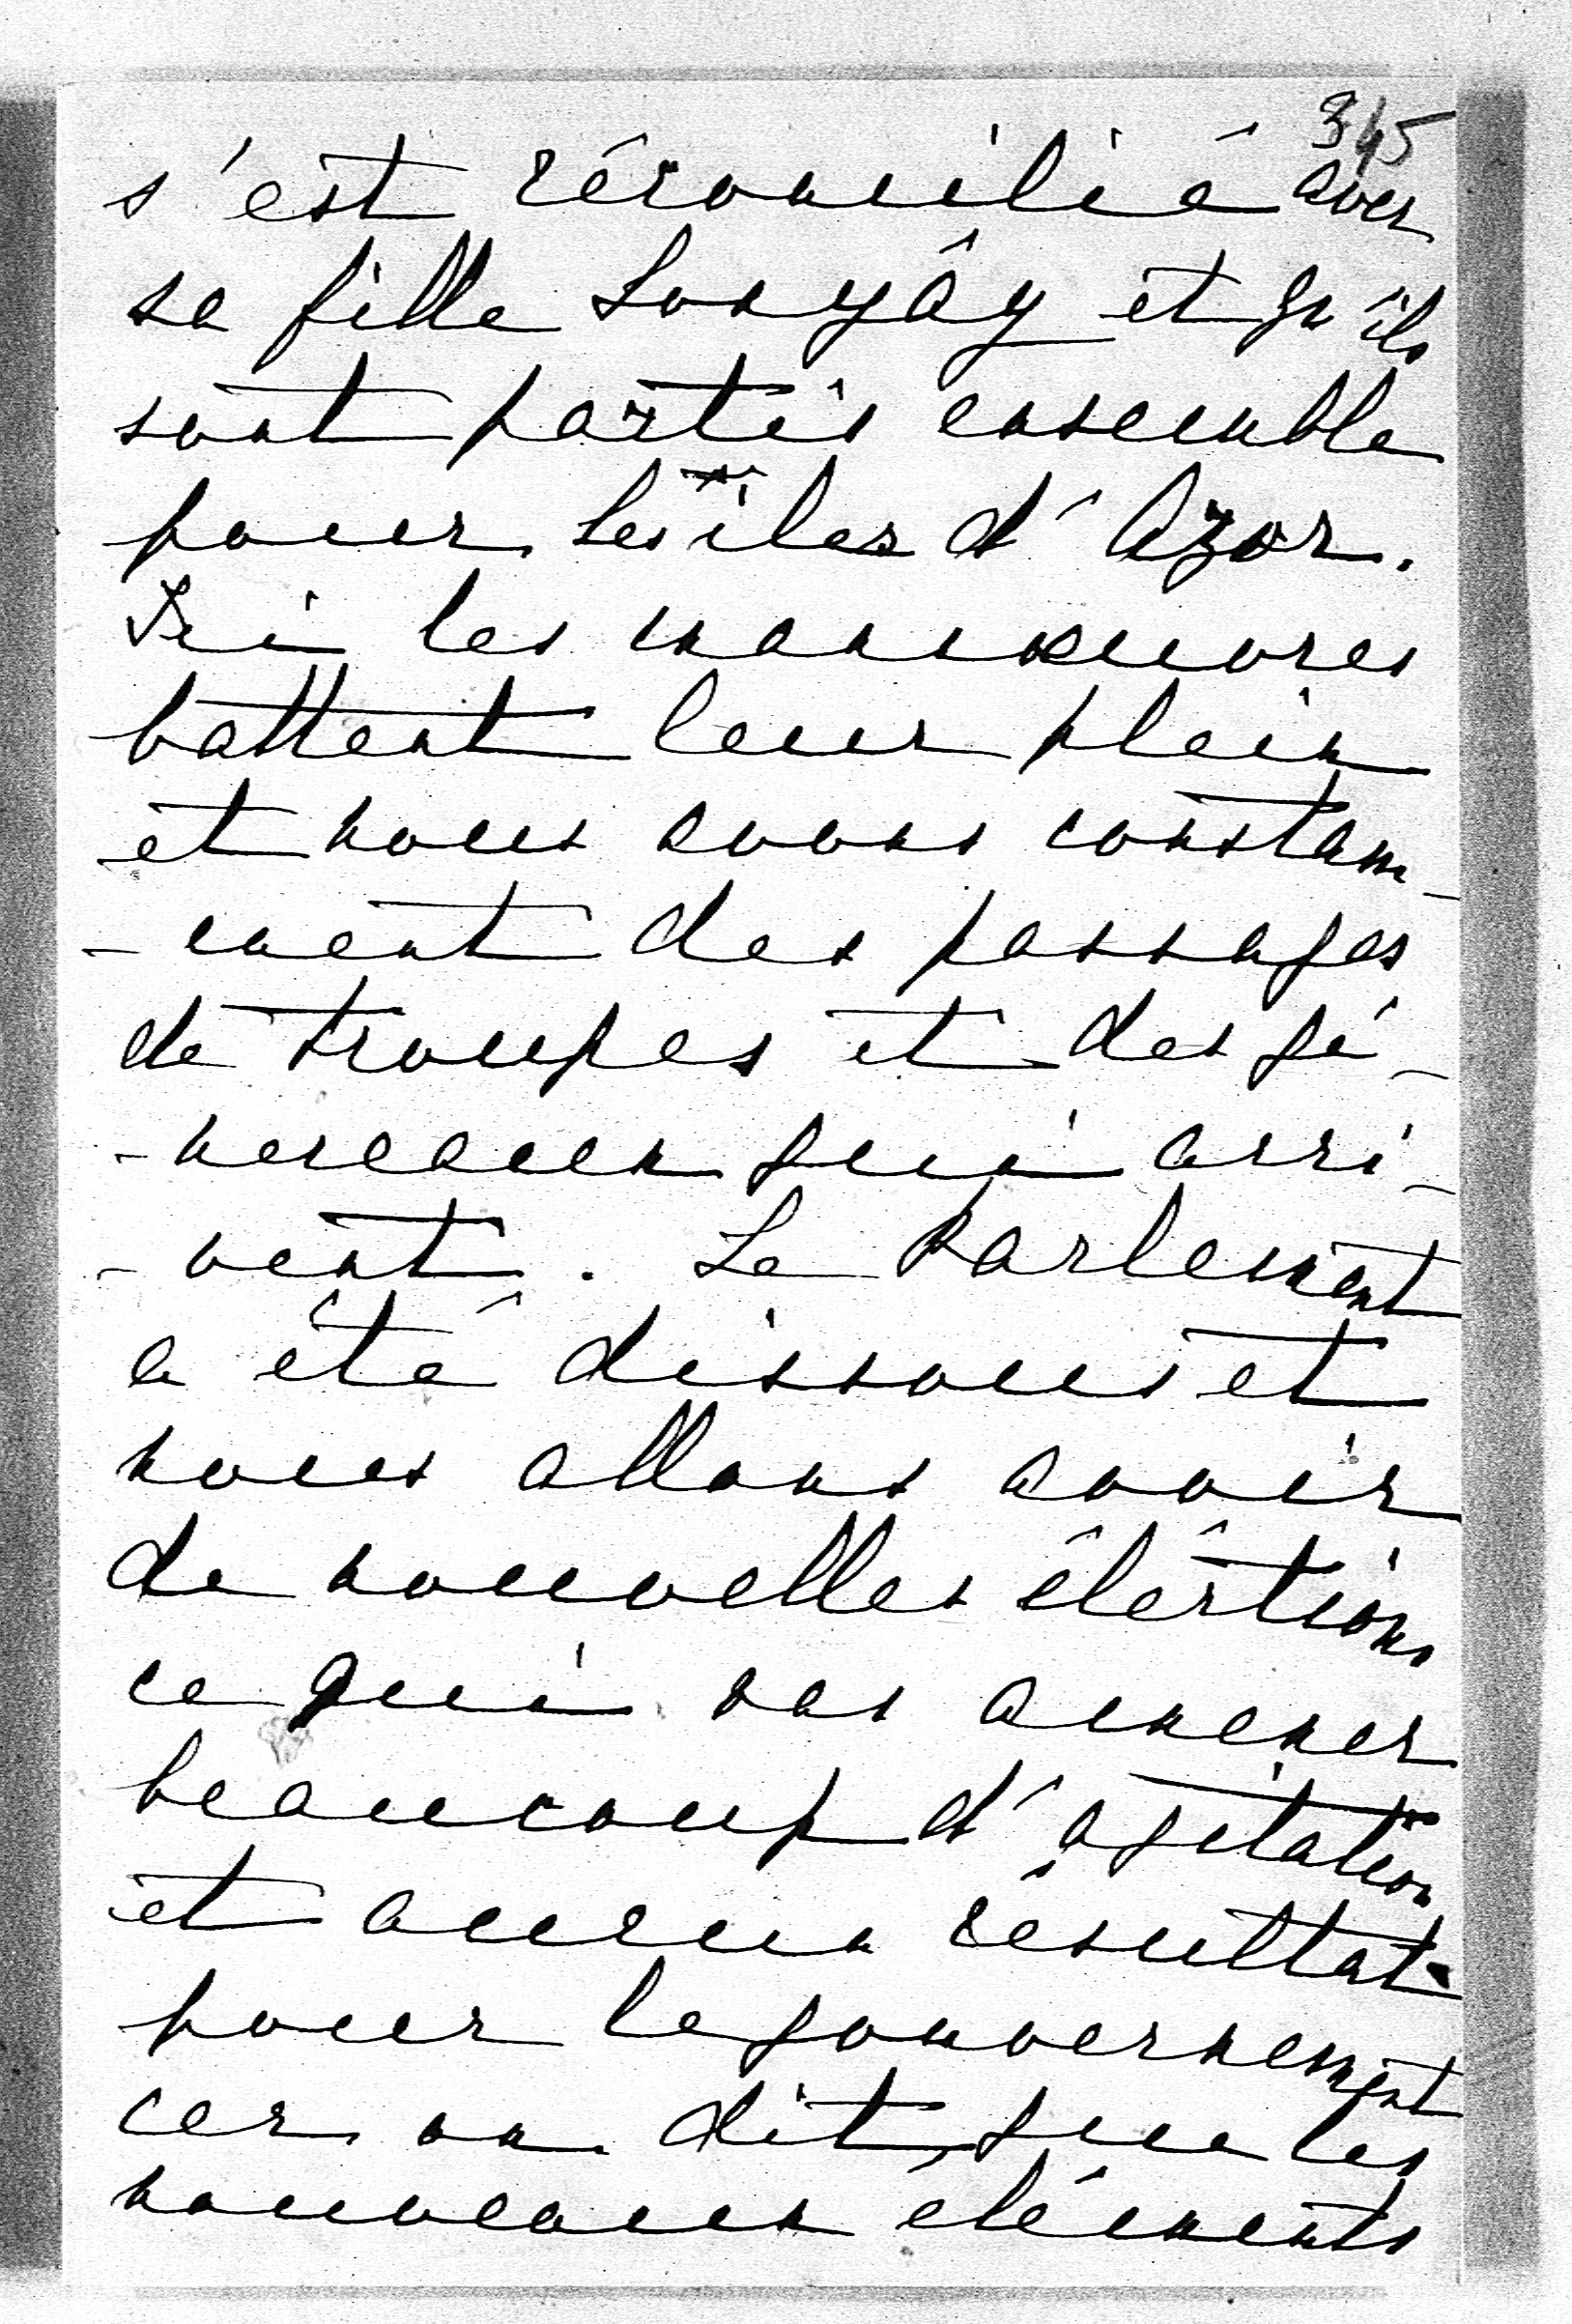 345
s'est réconcilié avec
sa fille Lonyây et qu'ils
sont partis ensemble
pour les îles d'Azor.
Ici les manoeuvres
battent leur plein
et nous avons constam-
-ment des passages
de troupes et des gé-
-nereaux qui arri-
-vent. Le Parlement
a été dissous et
nous allons avoir
de nouvelles élections
ce qui vas amener
beaucoup d'agitation
et aucun résultat
pour le gouvernement
car on dit que les
nouveaux éléments